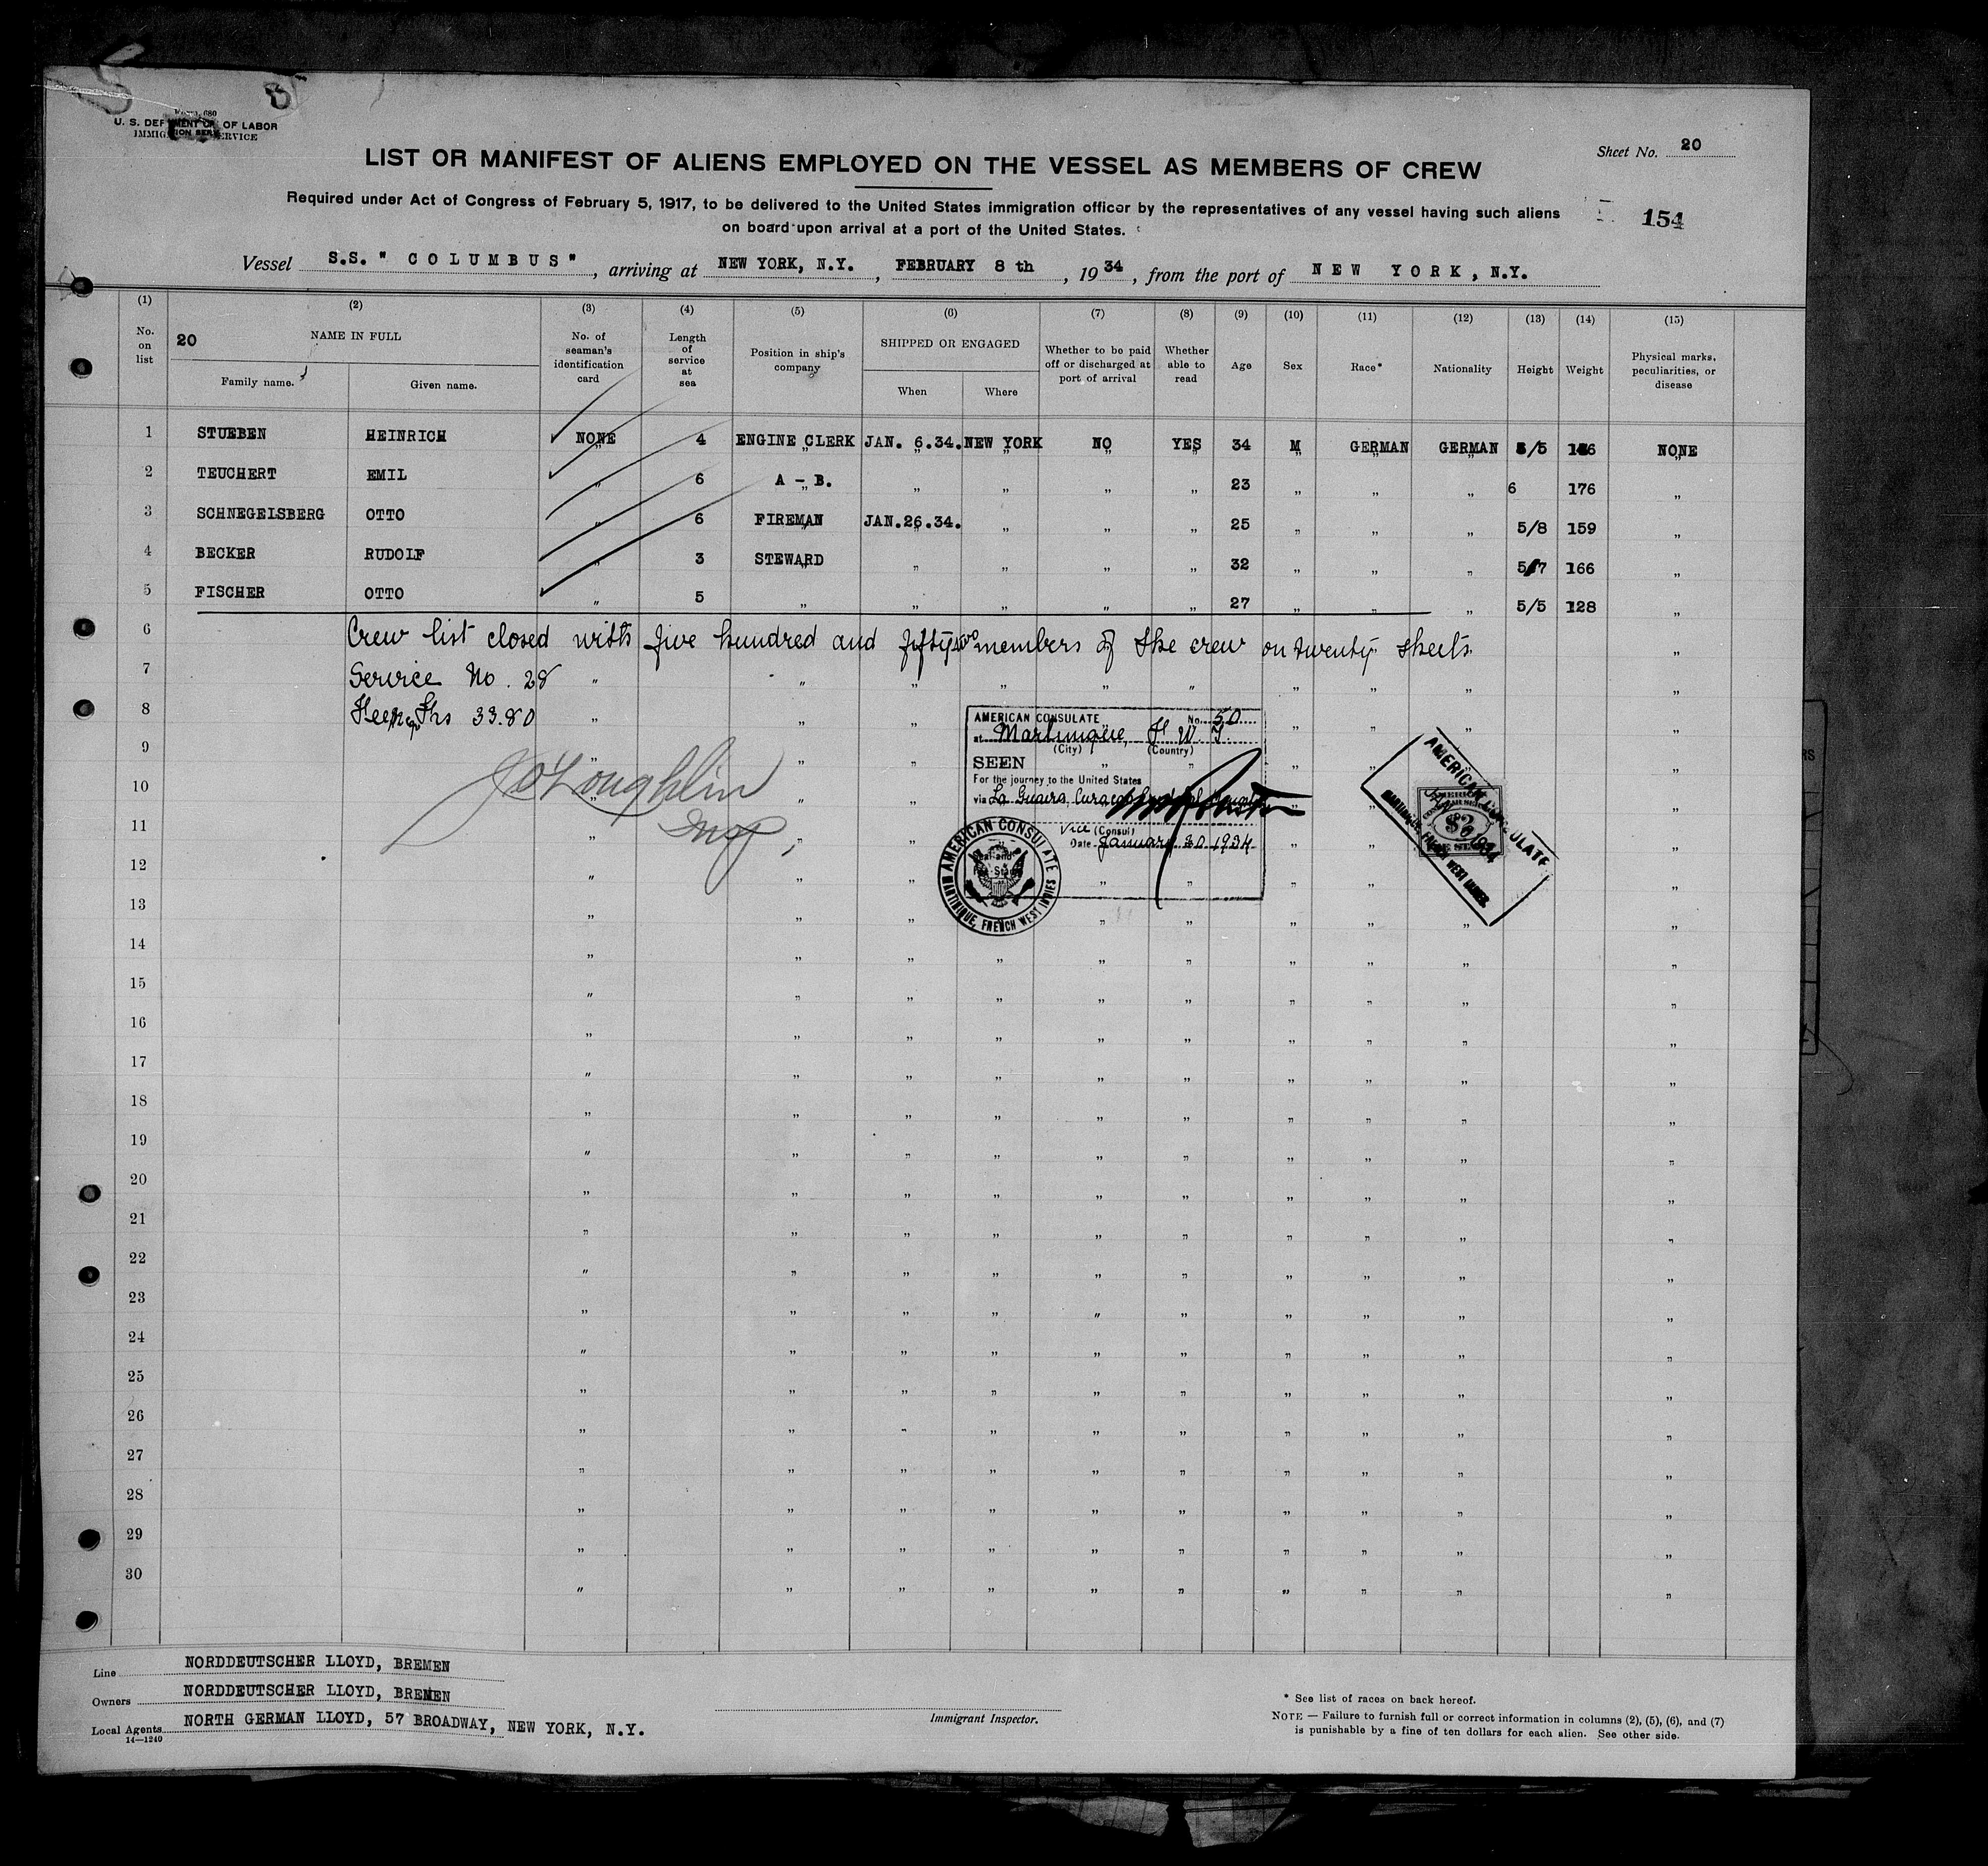 Form 680
U. S. DEPARTMENT OF LABOR
IMMIGRATION SERVICE
Sheet No. 20
LIST OR MANIFEST OF ALIENS EMPLOYED ON THE VESSEL AS MEMBERS OF CREW
Required under Act of Congress of February 5, 1917, to be delivered to the United States immigration officer by the representatives of any vessel having such aliens
on board upon arrival at a port of the United States.
154
Vessel S.S. " COLUMBUS " , arriving at NEW YORK, N.Y. , FEBRUARY 8 th , 1934 , from the port of NEW YORK, N.Y.
(1) (2) (3) (4) (5) (6) (7) (8) (9) (10) (11) (12) (13) (14) (15)
No. on list 20 NAME IN FULL Family name. Given name. No. of seaman's identification card Length of service at sea Position in ship's company SHIPPED OR ENGAGED When Where Whether to be paid off or discharged at port of arrival Whether able to read Age Sex Race* Nationality Height Weight Physical marks, peculiarities, or disease
1 STUEBEN HEINRICH NONE 4 ENGINE CLERK JAN. 6.34. NEW YORK NO YES 34 M GERMAN GERMAN 5/5 NONE
2 TEUCHERT EMIL " 6 A - B. " " " " 23 " " " 6 176 "
3 SCHNEGELSBERG OTTO " 6 FIREMAN JAN.26.34. " " " 25 " " " 5/8 159 "
4 BECKER RUDOLF " 3 STEWARD " " " " 32 " " " 5/7 166 "
5 FISCHER OTTO " 5 " " " " " 27 " " " 5/5 128 "
6 Crew list closed with five hundred and fifty two members of the crew on twenty sheets "
7 Service No. 28 " " " " " " " " " "
8 33.80
9
10
11
12
13
14
15
16
17
18
19
20
21
22
23
24
25
26
27
28
29
30
J O'Loughlin
Insp
AMERICAN CONSULATE No. 50
at Martinique, F. W. I.
(City) (Country)
SEEN
For the journey to the United States
via La Guaira, Curacao
Vice (Consul)
Date January 30 1934
AMERICAN CONSULATE
MARTINIQUE, FRENCH WEST INDIES
AMERICAN CONSULATE
1934
MARTINIQUE, FRENCH WEST INDIES
$2
FEE STAMP
Line NORDDEUTSCHER LLOYD, BREMEN
Owners NORDDEUTSCHER LLOYD, BREMEN
Local Agents NORTH GERMAN LLOYD, 57 BROADWAY, NEW YORK, N.Y.
14—1240
Immigrant Inspector.
* See list of races on back hereof.
NOTE — Failure to furnish full or correct information in columns (2), (5), (6), and (7)
is punishable by a fine of ten dollars for each alien. See other side.